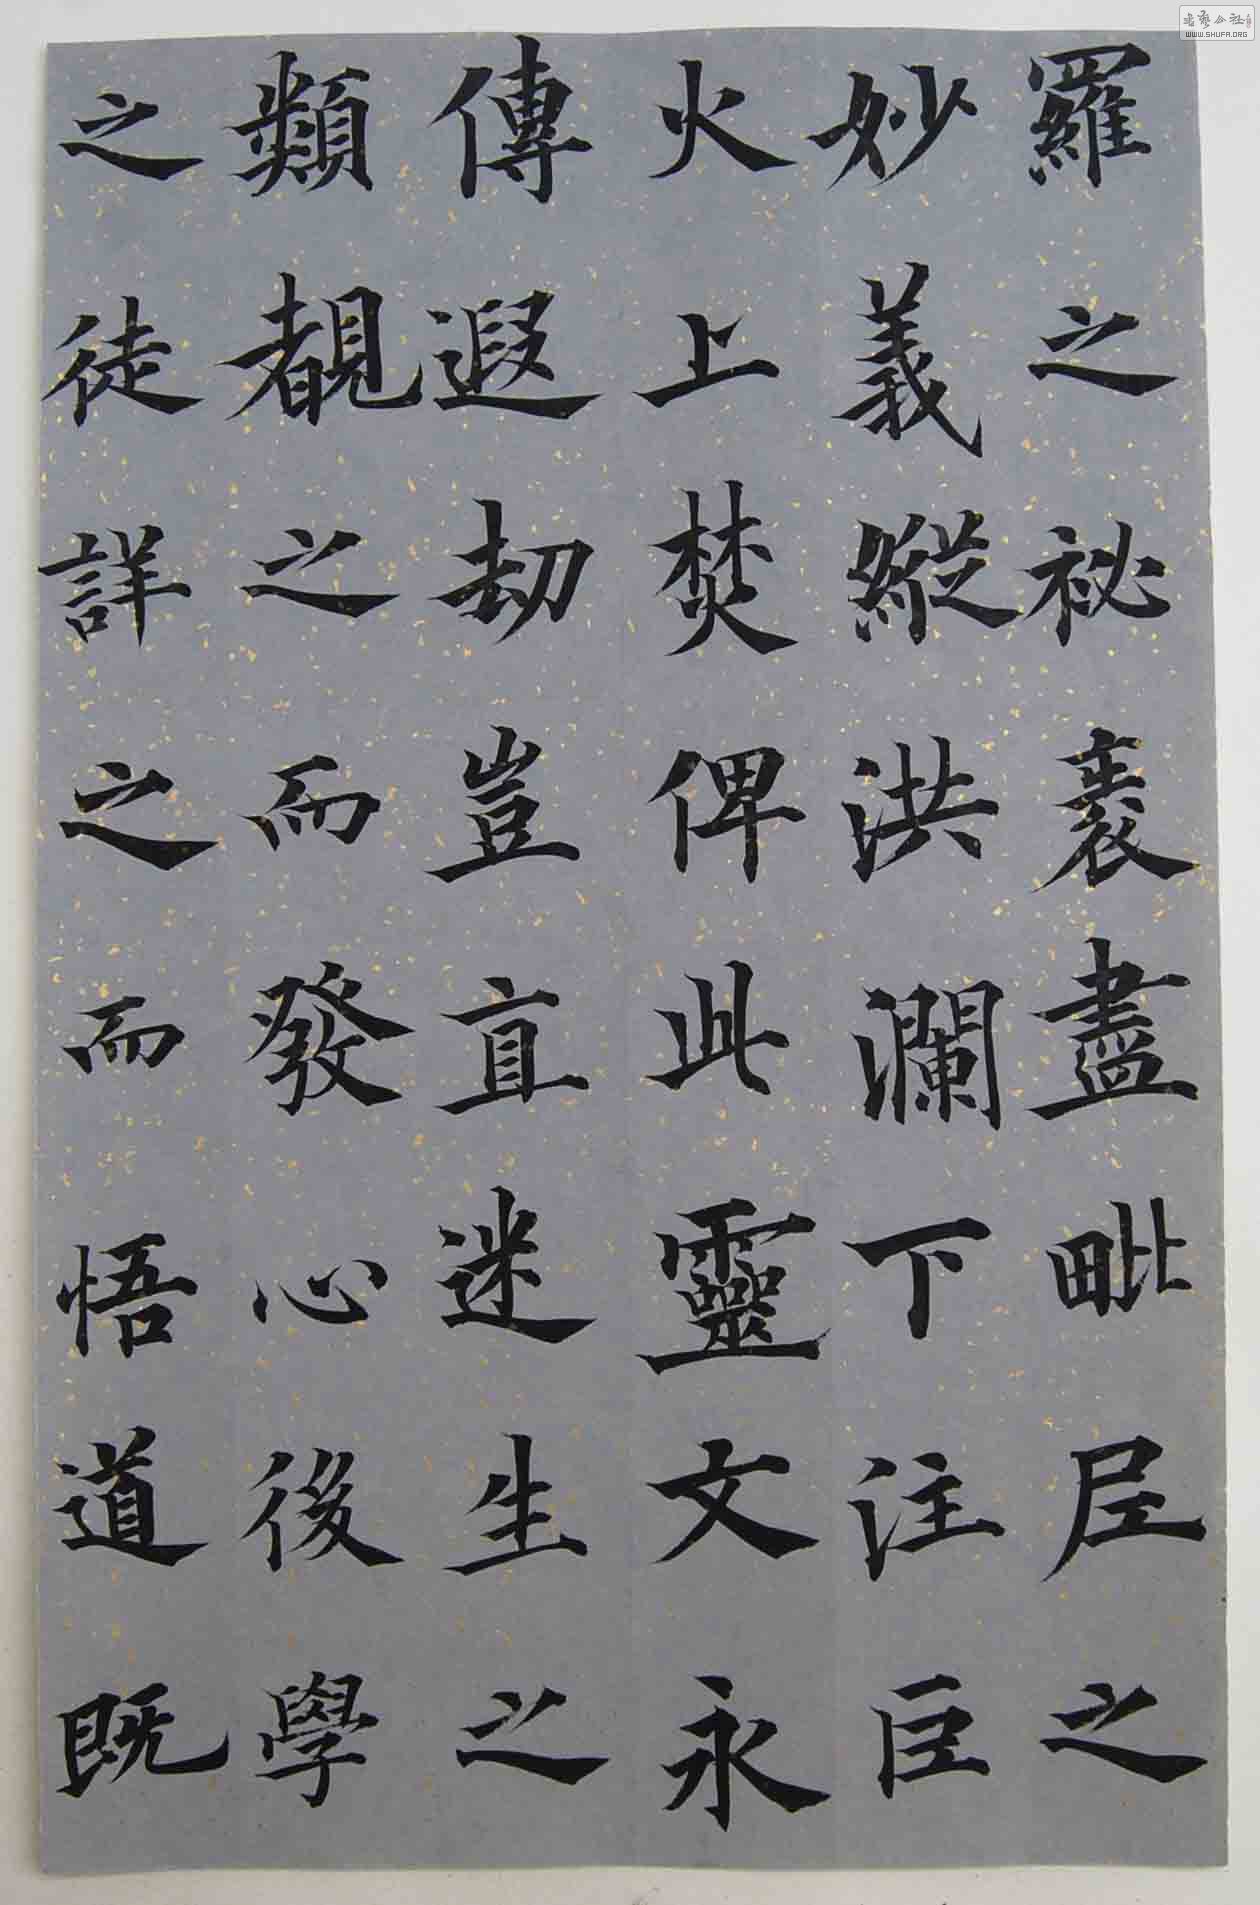 羅之祕袠盡毗尼之
妙義縱洪瀾下注巨
火上焚俾此靈文永
傳遐劫豈直迷生之
類覩之而發心後學
之徒詳之而悟道既
WWW.SHUFA.ORG